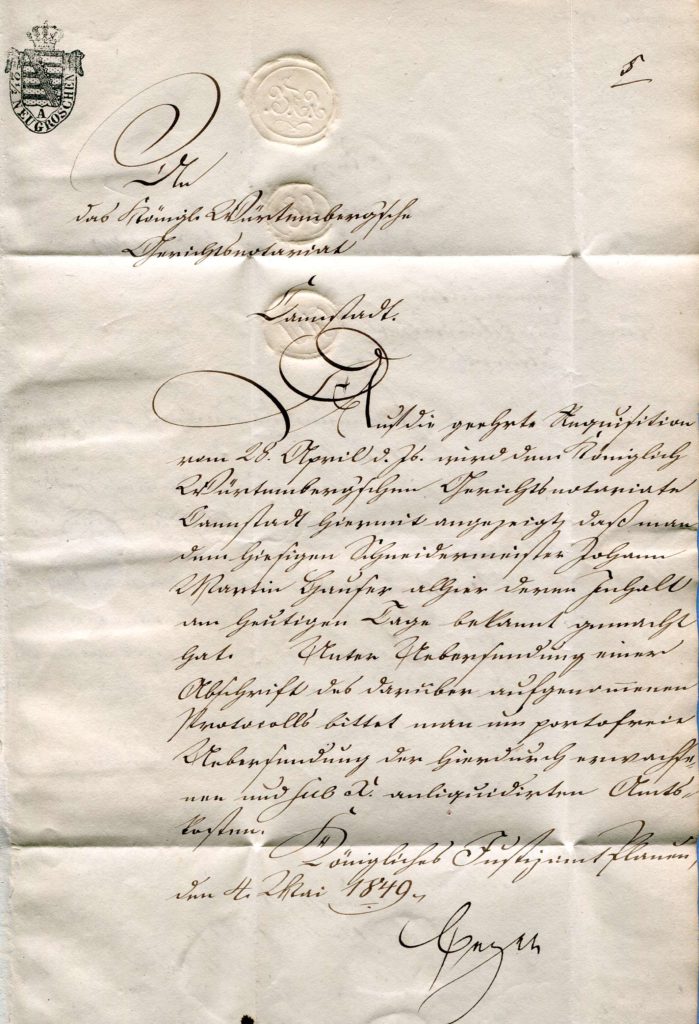 2½ NEUGROSCHEN
A
5
An
das Königl. Würtembergsche
Gerichtsnotariat
Cannstadt.
Auf die geehrte Requisition
vom 28. April d. Js. wird dem Königlich
Würtembergschen Gerichtsnotariate
Cannstadt hiermit angezeigt, daß man
dem hiesigen Schneidermeister Johann
Martin Hauser alhier deren Inhalt
am heutigen Tage bekannt gemacht
hat. Unter Uebersendung einer
Abschrift des darüber aufgenommenen
Protocolls bittet man um portofreie
Uebersendung der hierdurch erwachse-
nen und sub anliquidirten Amts-
kosten.
Königliches Justizamt Plauen,
den 4. Mai 1849.